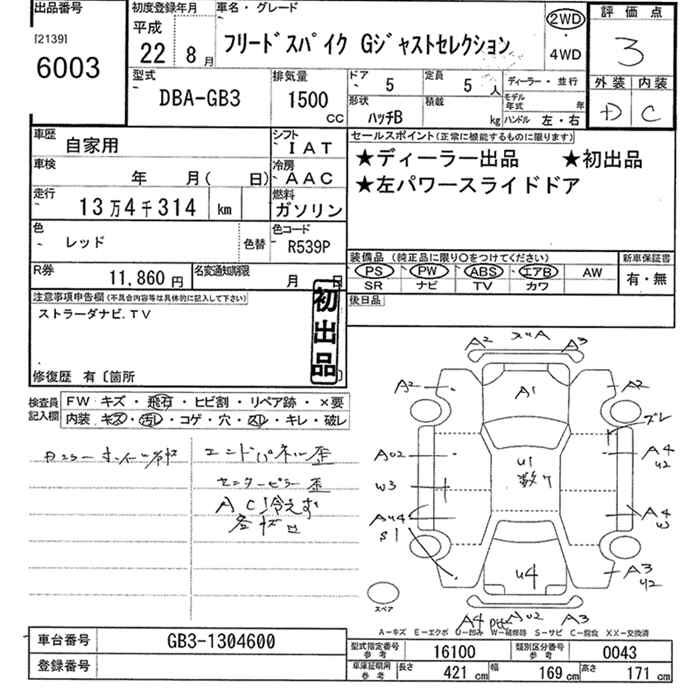 出品番号
[2139]
6003
初度登録年月
平成
22年 8月
車名・グレード
フリードスパイク Gジャストセレクション
2WD
・
4WD
評価点
3
外装 内装
D C
型式
DBA-GB3
排気量
1500
CC
ドア
5
定員
5人
形状
ハッチB
積載
kg
ディーラー・並行
モデル年式 年
ハンドル 左・右
車歴
自家用
シフト
IAT
車検
年 月( 日)
冷房
AAC
走行
13万4千314 km
燃料
ガソリン
色
レッド
色替
色コード
R539P
R券
11,860円
名変通知期限
月 日
セールスポイント(正常に機能するものに限ります)
★ディーラー出品 ★初出品
★左パワースライドドア
装備品 (純正品に限り○をつけてください)
新車保証書
PS PW ABS エアB AW
SR ナビ TV カワ
有・無
後日品
注意事項申告欄(不具合内容等は具体的に記入して下さい)
ストラーダナビ.TV
初出品
修復歴 有〔箇所 〕
検査員
記入欄
FW キズ・飛石・ヒビ割・リペア跡・×要
内装 キズ・汚レ・コゲ・穴・スレ・キレ・破レ
エンドパネル歪
センターピラー歪
AC冷えず
A2 A3
A2 A1 A2
ズレ
AU2 U1 A4
U2
W3 A4
W
AU4
S1
U4 A3
U2
スペア
A4 AU2 A3
A-キズ E-エクボ U-凹み W-補修跡 S-サビ C-腐食 XX-交換済
車台番号
GB3-1304600
登録番号
型式指定番号
参考
16100
類別区分番号
参考
0043
車庫証明用
参考
長さ 421cm 幅 169cm 高さ 171cm